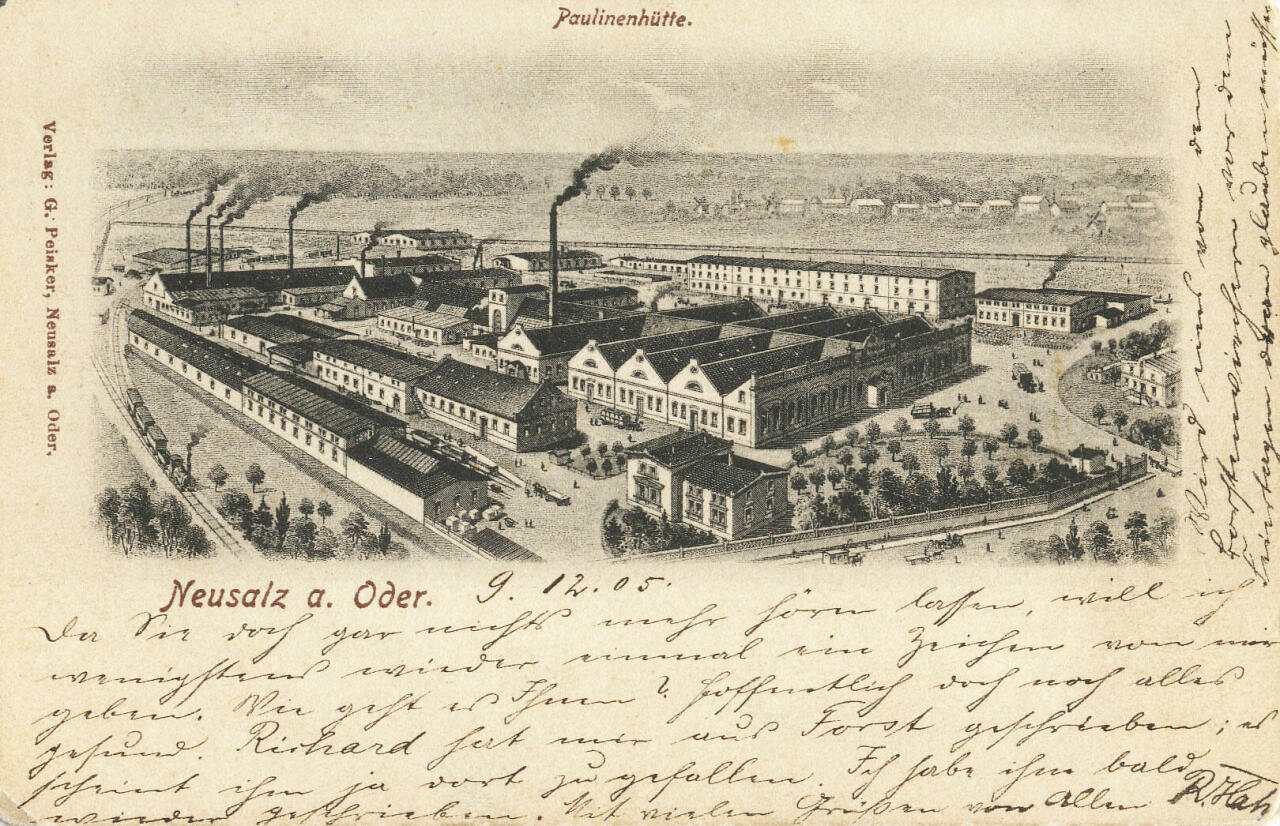 Paulinenhütte.
Verlag: G. Peisker, Neusalz a. Oder.
Neusalz a. Oder. 9. 12. 05.
Da Sie doch gar nichts mehr hören lassen, will ich
wenigstens wieder einmal ein Zeichen von mir
geben. Wie geht es Ihnen? Hoffentlich doch noch alles
gesund. Richard hat mir aus Forst geschrieben; es
scheint ihm ja dort zu gefallen. Ich habe ihm bald
wieder geschrieben. Mit vielen Grüßen von Allen
Wird uns von den
vor dem
daran glauben müssen